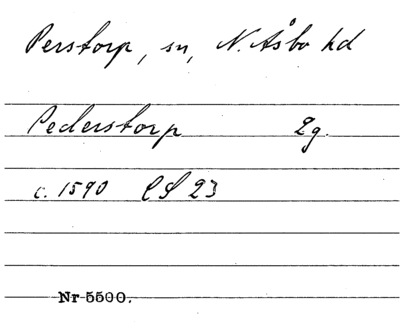 Perstorp, sn, N. Åsbo hd
Pederstorp 2g.
c. 1590 CS 23
Nr 5500.